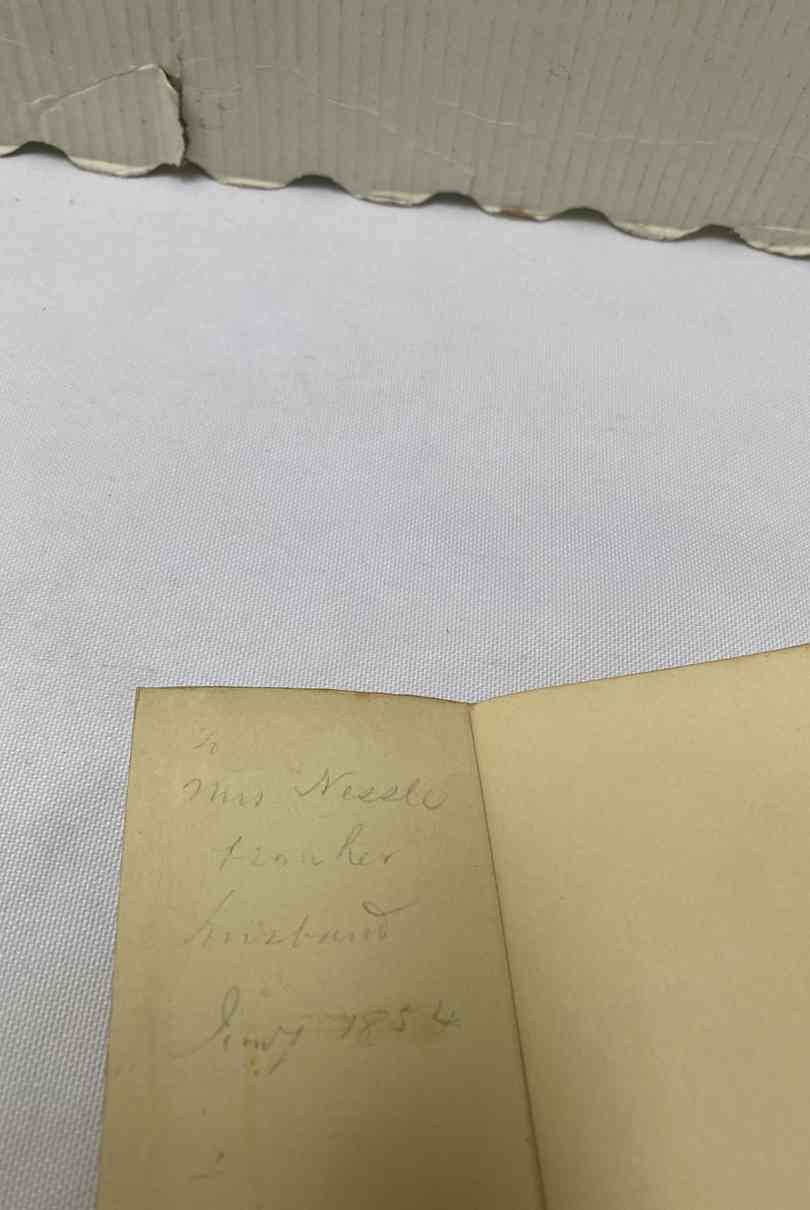 To
Mrs Nessle
from her
husband
1854